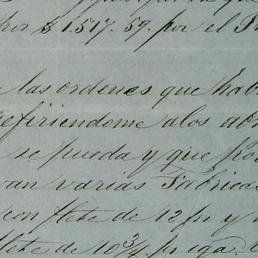 por $1.517.59. por el
las ordenes que hab
refiriendome a los
se pueda y que po
an varias Fabricas
con flete de 12 fr y
flete de 10 3/4. pr ega.